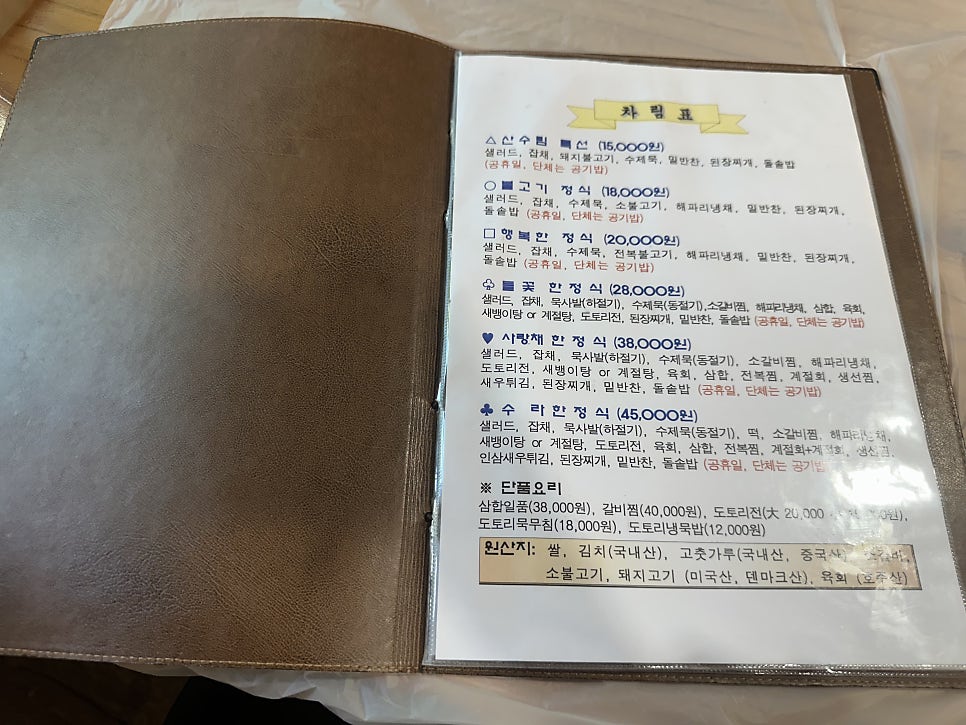 차림표
△산수림 특선 (15,000원)
샐러드, 잡채, 돼지불고기, 수제묵, 밑반찬, 된장찌개, 돌솥밥
(공휴일, 단체는 공기밥)
○불고기 정식 (18,000원)
샐러드, 잡채, 수제묵, 소불고기, 해파리냉채, 밑반찬, 된장찌개,
돌솥밥 (공휴일, 단체는 공기밥)
□행복한 정식 (20,000원)
샐러드, 잡채, 수제묵, 전복불고기, 해파리냉채, 밑반찬, 된장찌개,
돌솥밥 (공휴일, 단체는 공기밥)
♧들꽃 한정식 (28,000원)
샐러드, 잡채, 묵사발(하절기), 수제묵(동절기),소갈비찜, 해파리냉채, 삼합, 육회,
새뱅이탕 or 계절탕, 도토리전, 된장찌개, 밑반찬, 돌솥밥 (공휴일, 단체는 공기밥)
♥ 사랑채한정식 (38,000원)
샐러드, 잡채, 묵사발(하절기), 수제묵(동절기), 소갈비찜, 해파리냉채,
도토리전, 새뱅이탕 or 계절탕, 육회, 삼합, 전복찜, 계절회, 생선찜,
새우튀김, 된장찌개, 밑반찬, 돌솥밥 (공휴일, 단체는 공기밥)
♣ 수 라한정식 (45,000원)
샐러드, 잡채, 묵사발(하절기), 수제묵(동절기), 떡, 소갈비찜, 해파리냉채,
새뱅이탕 or 계절탕, 도토리전, 육회, 삼합, 전복찜, 계절회+계절회, 생선찜,
인삼새우튀김, 된장찌개, 밑반찬, 돌솥밥 (공휴일, 단체는 공기밥)
※ 단품요리
삼합일품(38,000원), 갈비찜(40,000원), 도토리전(大 20,000
도토리묵무침(18,000원), 도토리냉묵밥(12,000원)
원산지: 쌀, 김치(국내산), 고춧가루(국내산, 중국산)
소불고기, 돼지고기 (미국산, 덴마크산), 육회 (호주산)